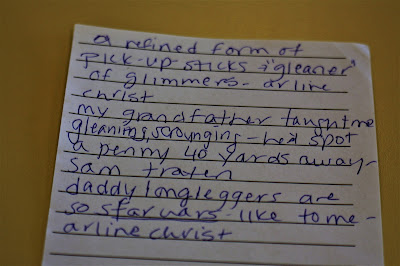 a refined form of
pick-up sticks "gleaner"
of glimmers - arline
christ
my grandfather taught me
gleaning, scrounging - he'd spot
a penny 40 yards away -
sam
daddy longleggers are
so starwars - like to me -
arline christ